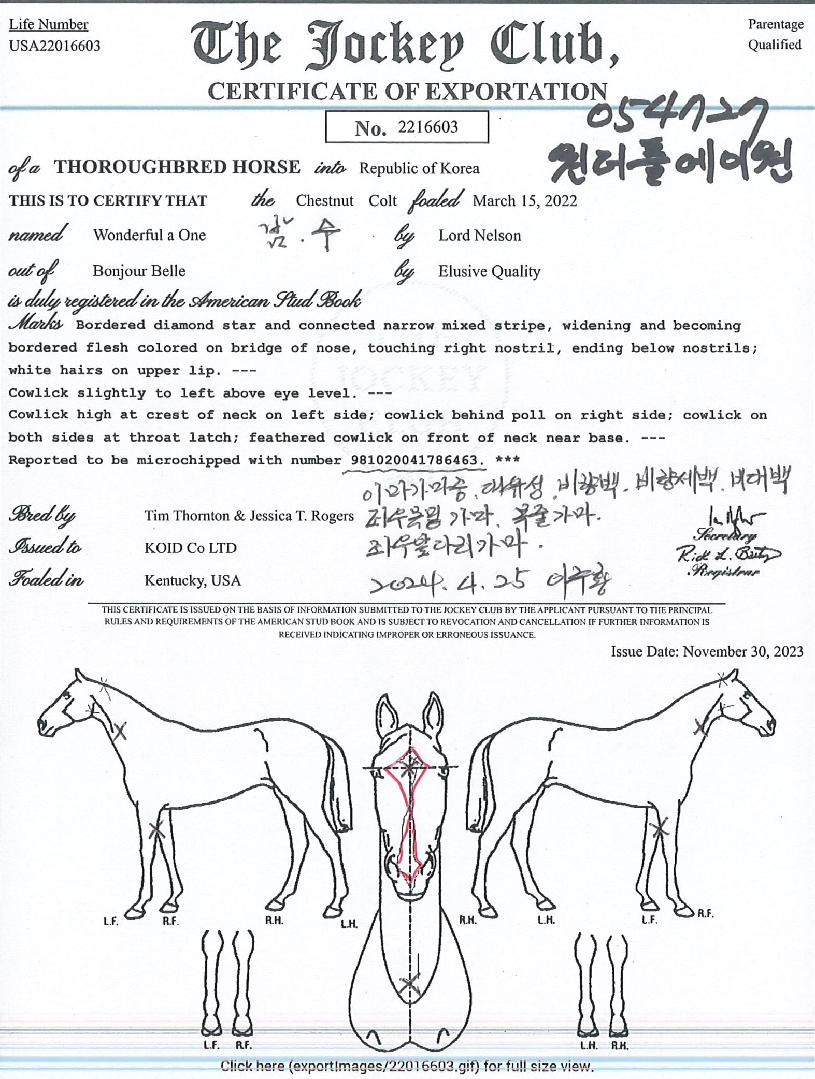 Life Number
USA22016603
The Jockey Club,
Parentage
Qualified
CERTIFICATE OF EXPORTATION
No. 2216603
0547727
원더풀에이원
of a THOROUGHBRED HORSE into Republic of Korea
THIS IS TO CERTIFY THAT the Chestnut Colt foaled March 15, 2022
named Wonderful a One 수 by Lord Nelson
out of Bonjour Belle by Elusive Quality
is duly registered in the American Stud Book
Marks Bordered diamond star and connected narrow mixed stripe, widening and becoming
bordered flesh colored on bridge of nose, touching right nostril, ending below nostrils;
white hairs on upper lip. ---
Cowlick slightly to left above eye level. ---
Cowlick high at crest of neck on left side; cowlick behind poll on right side; cowlick on
both sides at throat latch; feathered cowlick on front of neck near base. ---
Reported to be microchipped with number 981020041786463. ***
이마가마중, 대유성, 비량백, 비량세백, 비대백
Bred by Tim Thornton & Jessica T. Rogers 가마, 목줄가마.
Issued to KOID Co LTD 좌우앞다리가마.
Secretary
Registrar
Foaled in Kentucky, USA 2024. 4. 25
THIS CERTIFICATE IS ISSUED ON THE BASIS OF INFORMATION SUBMITTED TO THE JOCKEY CLUB BY THE APPLICANT PURSUANT TO THE PRINCIPAL
RULES AND REQUIREMENTS OF THE AMERICAN STUD BOOK AND IS SUBJECT TO REVOCATION AND CANCELLATION IF FURTHER INFORMATION IS
RECEIVED INDICATING IMPROPER OR ERRONEOUS ISSUANCE.
Issue Date: November 30, 2023
L.F. R.F. R.H. L.H. R.H. L.H. L.F. R.F.
L.F. R.F. L.H. R.H.
Click here (exportImages/22016603.gif) for full size view.